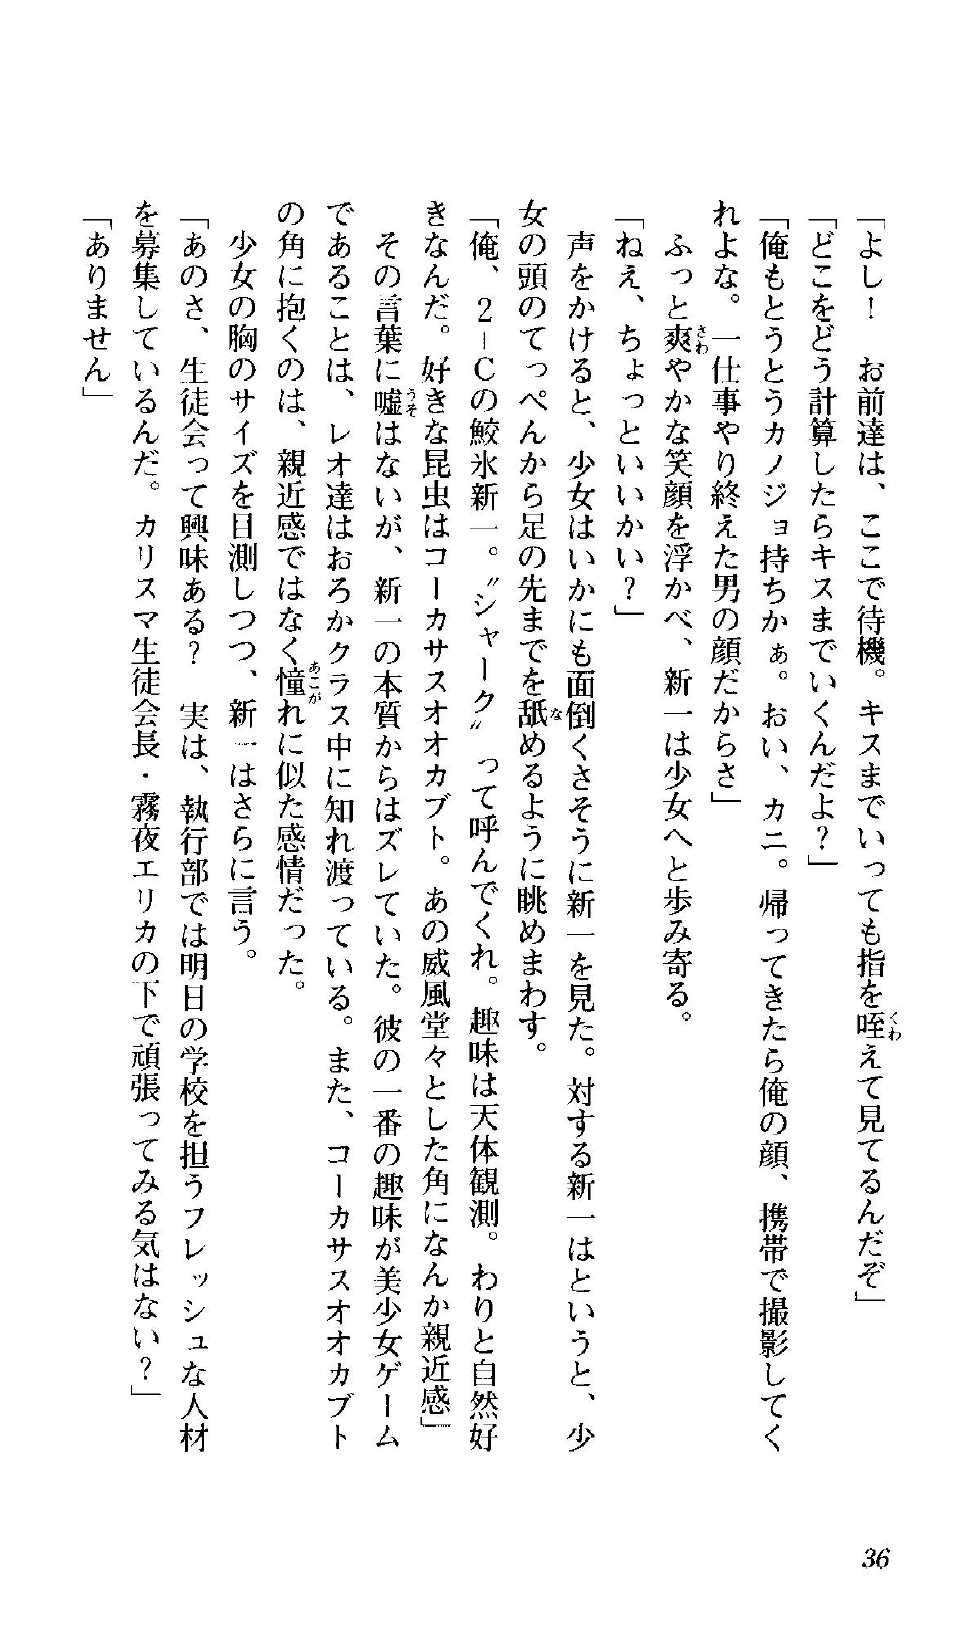 「よし！　お前達は、ここで待機。キスまでいっても指を咥えて見てるんだぞ」
「どこをどう計算したらキスまでいくんだよ？」
「俺もとうとうカノジョ持ちかぁ。おい、カニ。帰ってきたら俺の顔、携帯で撮影してく
れよな。一仕事やり終えた男の顔だからさ」
　ふっと爽やかな笑顔を浮かべ、新一は少女へと歩み寄る。
「ねえ、ちょっといいかい？」
　声をかけると、少女はいかにも面倒くさそうに新一を見た。対する新一はというと、少
女の頭のてっぺんから足の先までを舐めるように眺めまわす。
「俺、２−Ｃの鮫氷新一。〝シャーク〟って呼んでくれ。趣味は天体観測。わりと自然好
きなんだ。好きな昆虫はコーカサスオオカブト。あの威風堂々とした角になんか親近感」
　その言葉に嘘はないが、新一の本質からはズレていた。彼の一番の趣味が美少女ゲーム
であることは、レオ達はおろかクラス中に知れ渡っている。また、コーカサスオオカブト
の角に抱くのは、親近感ではなく憧れに似た感情だった。
　少女の胸のサイズを目測しつつ、新一はさらに言う。
「あのさ、生徒会って興味ある？　実は、執行部では明日の学校を担うフレッシュな人材
を募集しているんだ。カリスマ生徒会長・霧夜エリカの下で頑張ってみる気はない？」
「ありません」
36